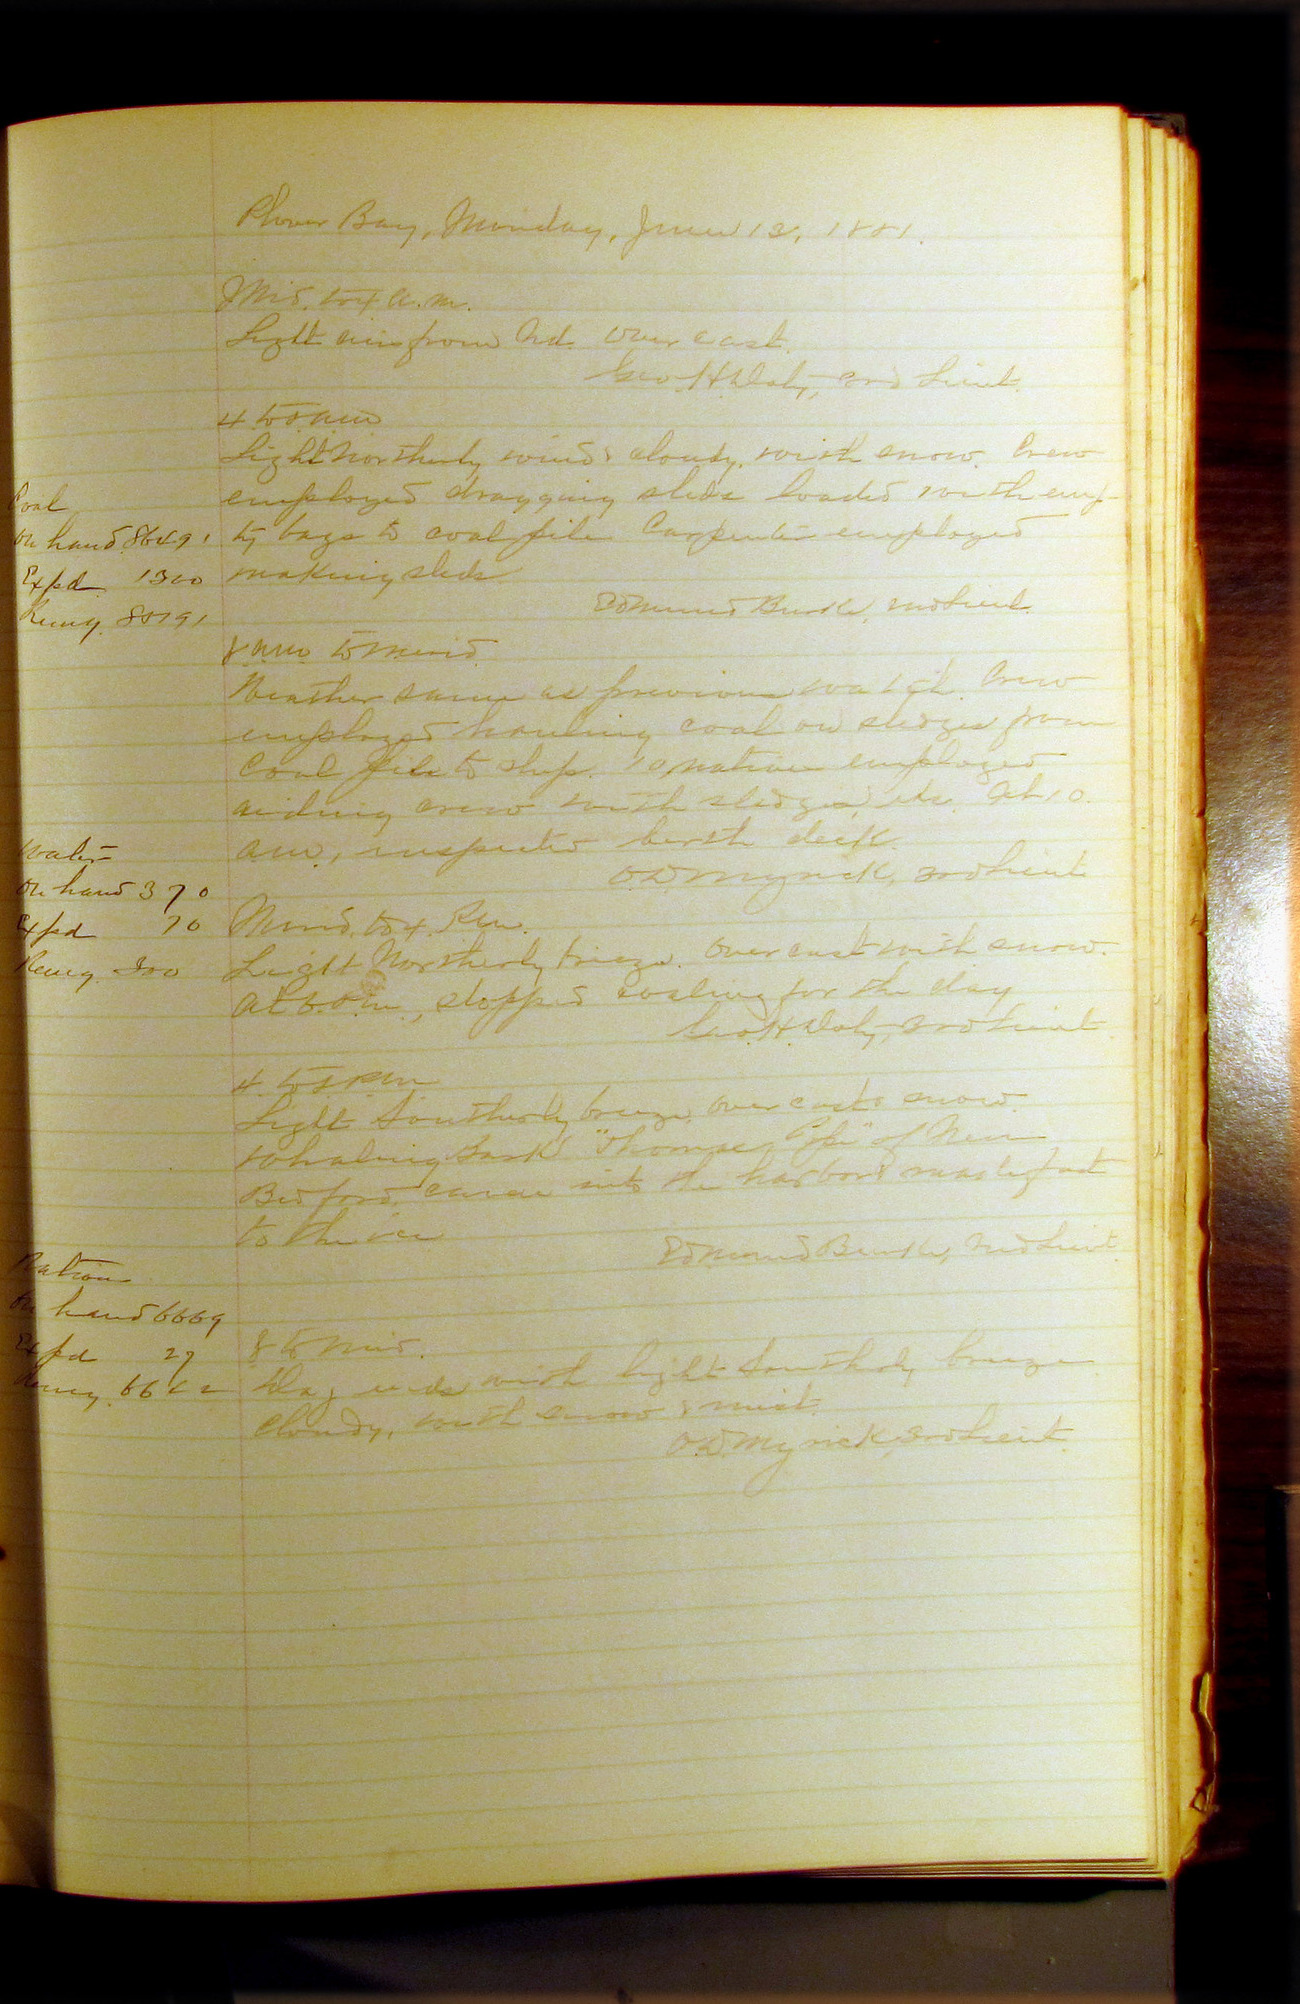 Plover Bay, Monday, June 13, 1881.
Mid. to 4 a.m.
Light airs from Nd. Overcast.
Geo. H. Doty, 3rd Lieut.
4 to 8 am
Light Northerly wind & cloudy, with snow. Crew
employed dragging sleds loaded with emp-
ty bags to coal pile Carpenter employed
making sleds
Edmund Burke, 2nd Lieut.
8 am to Merid
Weather same as previous watch. Crew
employed hauling coal on sledges from
Coal pile to ship. 10 natives employed
aiding crew with sledges, etc. At 10.
am, inspected berth deck.
O D Myrick, 3rd Lieut
Merid. to 4. P.m.
Light Northerly breeze. Overcast with snow.
At P.m., stopped coaling for the day
Geo. H. Doty, 3rd Lieut
4 to 8 P.m
Light Southerly breeze, overcast & snow.
Whaling Bark "Thomas Pope" of New
Bedford, came into the harbor & made fast
to the ice
Edmund Burke, 2nd Lieut
8 to Mid.
Day ends with light Southerly breeze
cloudy, with snow & mist.
O. D. Myrick, 3rd Lieut.
Coal
On hand 86491
Expd. 1300
Remg. 85191
Water
On hand 370
Expd 70
Remg 300
Rations
On hand 6669
Expd 27
Remg. 6642